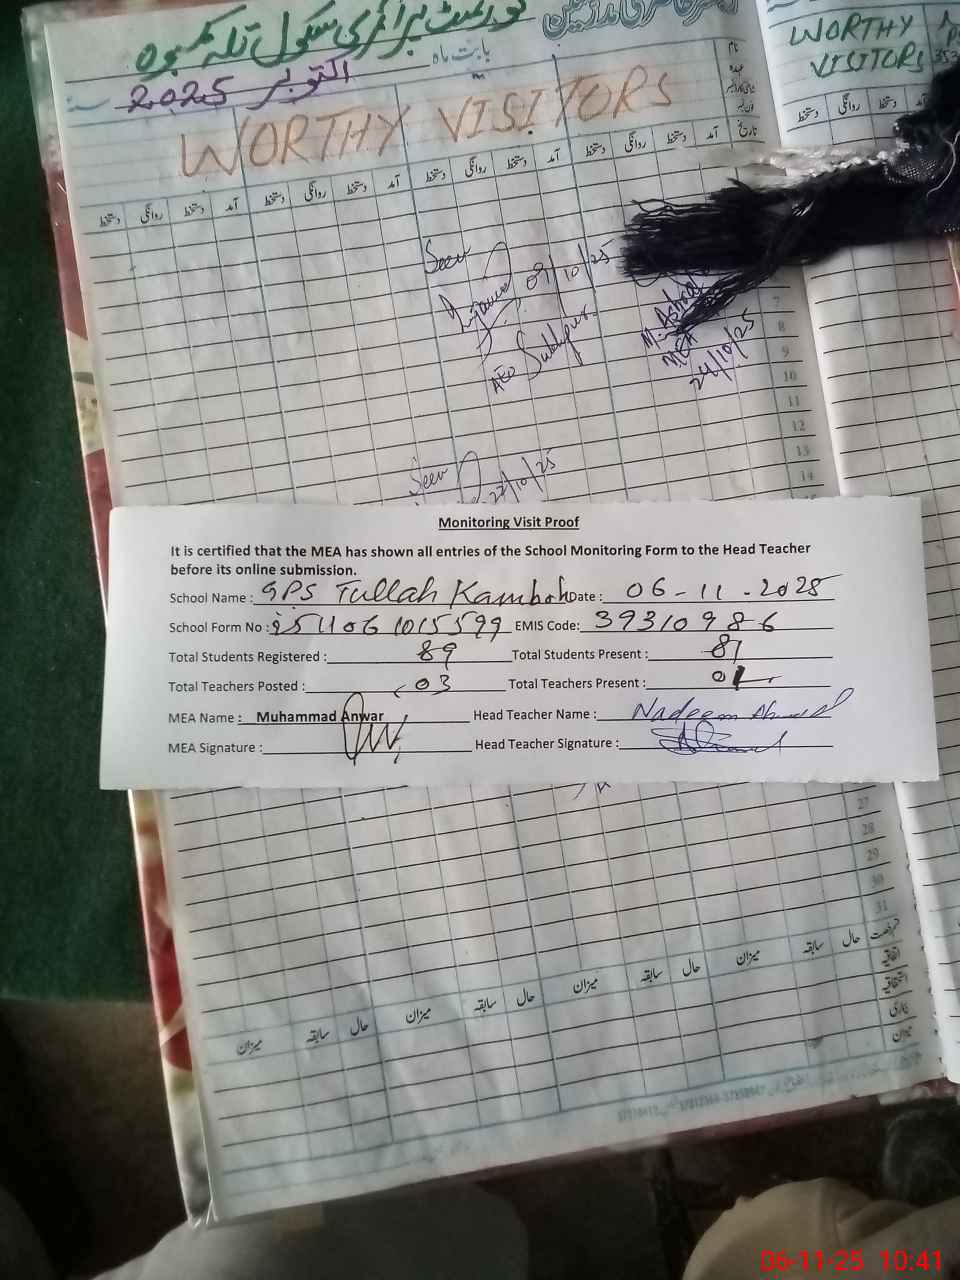 گورنمنٹ پرائمری سکول تلہ کمبوہ
بابت ماہ
اکتوبر 2025
WORTHY VISITORS
WORTHY
VISITORS
تاریخ آمد دستخط روانگی دستخط آمد دستخط روانگی دستخط آمد دستخط روانگی دستخط آمد دستخط روانگی دستخط
دستخط روانگی دستخط
Seen
09/10/25
AEO
M. Ashraf
MEA
24/10/25
7
8
9
10
11
12
13
14
Seen
27/10/25
Monitoring Visit Proof
It is certified that the MEA has shown all entries of the School Monitoring Form to the Head Teacher
before its online submission.
School Name : GPS Tullah Kamboh Date : 06-11-2025
School Form No : 2511061015599 EMIS Code: 39310986
Total Students Registered : 89 Total Students Present : 81
Total Teachers Posted : 03 Total Teachers Present : 01
MEA Name : Muhammad Anwar Head Teacher Name : Nadeem Ahmad
MEA Signature : Head Teacher Signature :
27
28
29
30
31
حال سابقہ میزان حال سابقہ میزان حال سابقہ میزان حال سابقہ میزان
اتفاقیہ
استحقاقیہ
بیماری
میزان
06-11-25 10:41